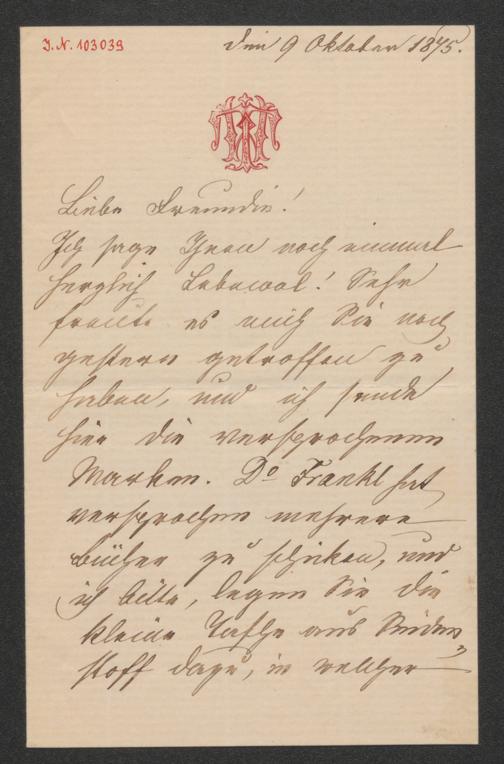 J.N. 103039
den 9 Oktober 1875.
Liebe Freundin!
Ich sage Ihnen noch einmal
herzlich Lebewol! Sehr
freute es mich Sie noch
gestern getroffen zu
haben, und ich sende
hier die versprochenen
Marken. Dr Frankl hat
versprochen mehrere
Bücher zu schicken, und
ich bitte, legen Sie die
kleine Tasche aus Seiden„
stoff dazu, in welcher